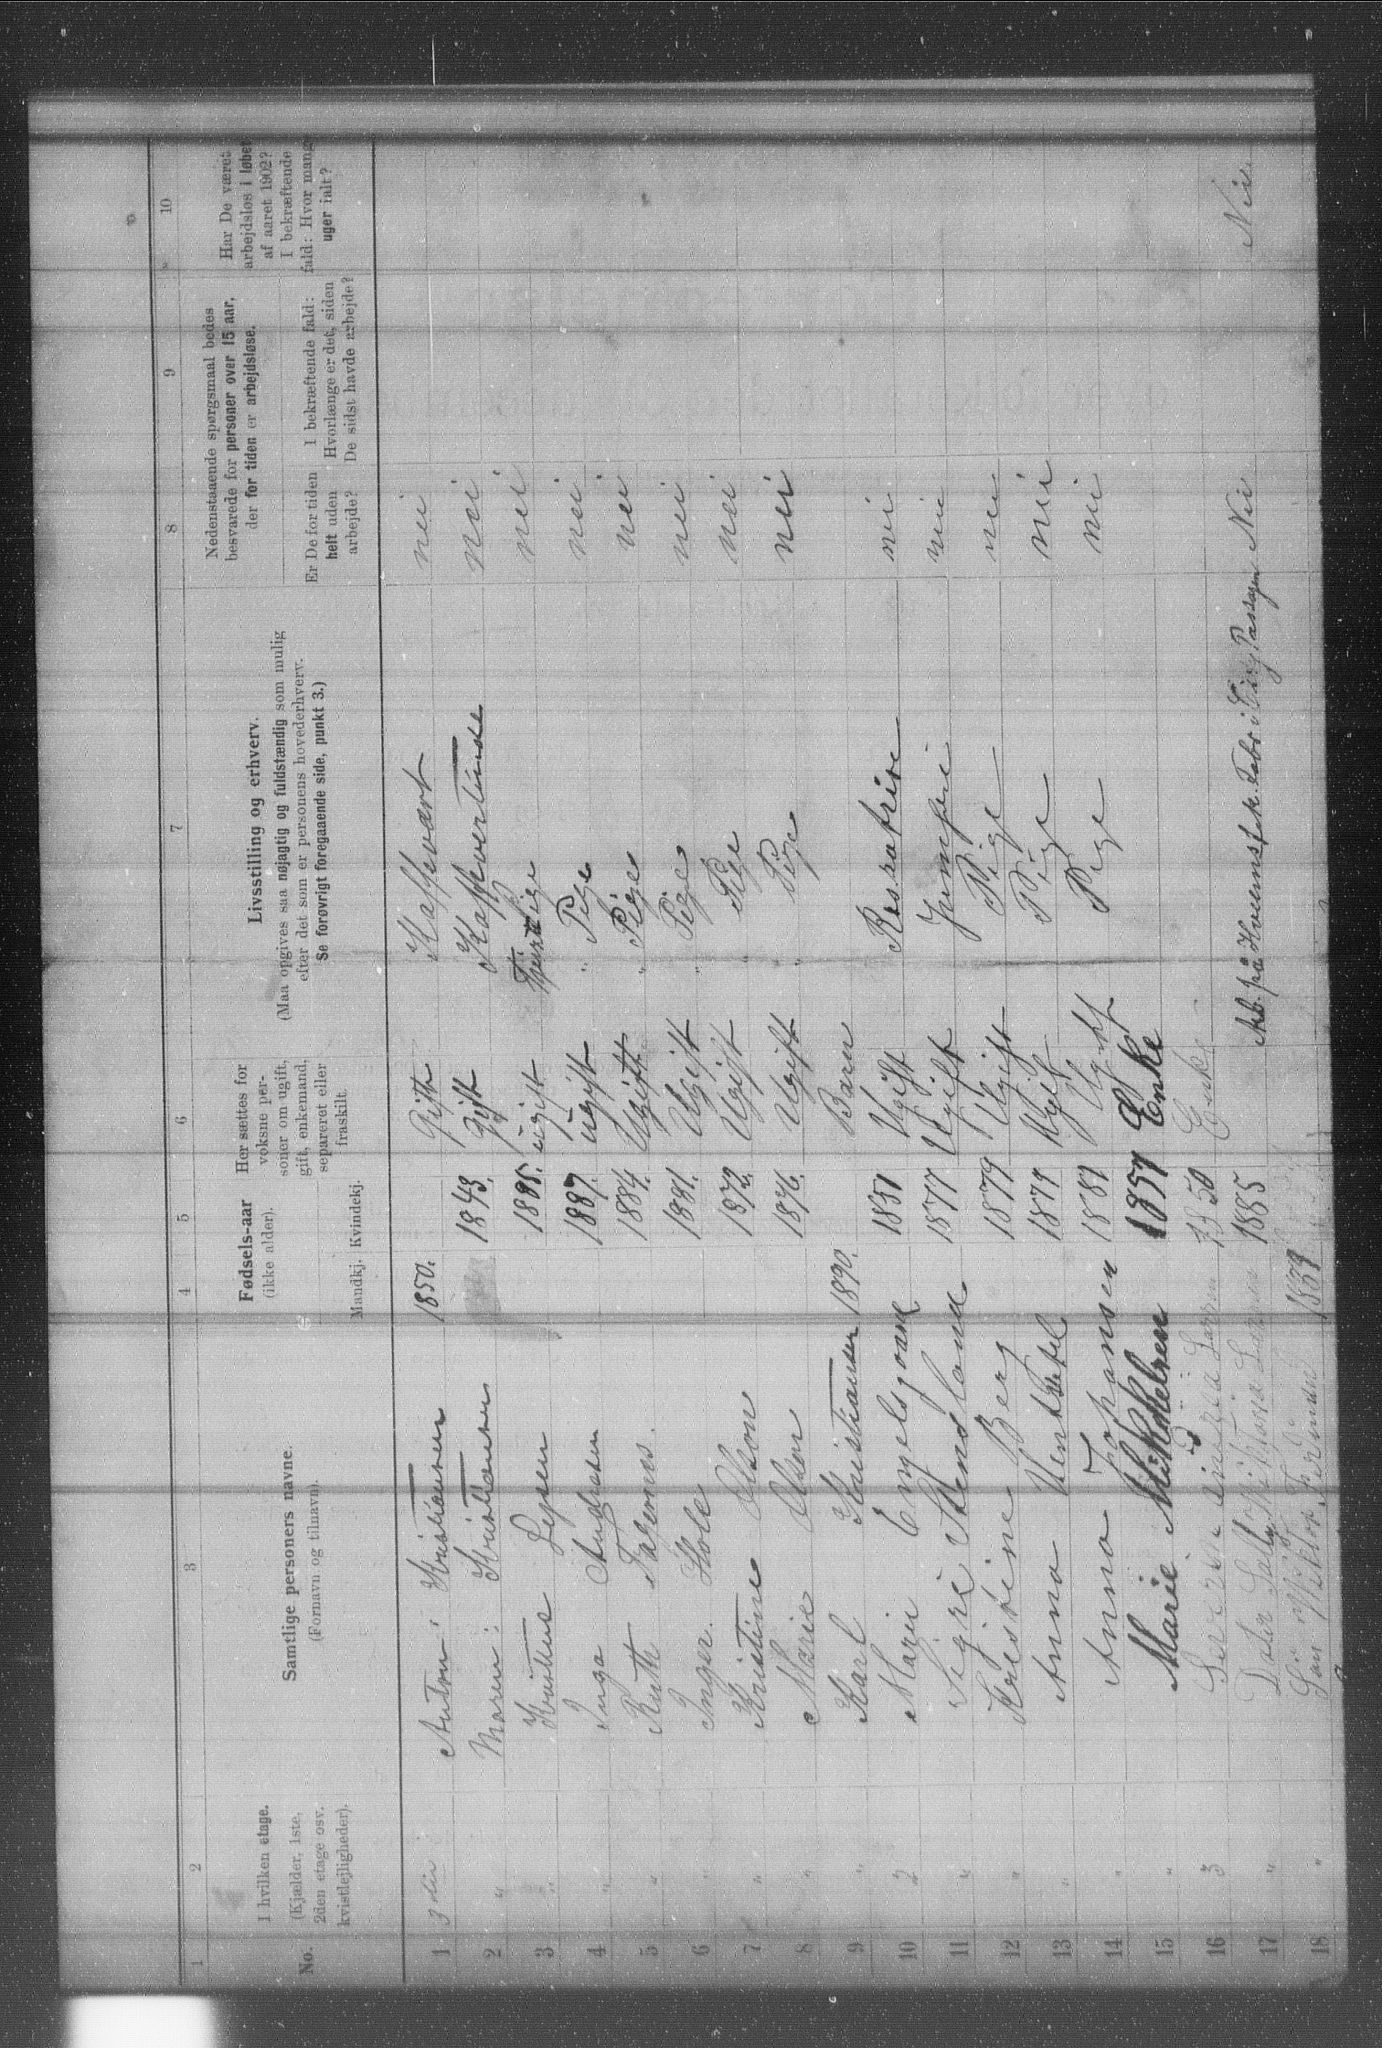 1 2 3 4 5 6 7 8 9 10
No.
I hvilken etage.
(Kjælder, 1ste,
2den etage osv.
kvistlejligheder).
Samtlige personers navne.
(Fornavn og tilnavn).
Fødsels-aar
(ikke alder).
Mandkj. Kvindekj.
Her sættes for
voksne per-
soner om ugift,
gift, enkemand,
separeret eller
fraskilt.
Livsstilling og erhverv.
(Maa opgives saa nøjagtig og fuldstændig som mulig
efter det som er personens hovederhverv.
Se forøvrigt foregaaende side, punkt 3.)
Nedenstaaende spørgsmaal bedes
besvarede for personer over 15 aar,
der for tiden er arbejdsløse.
Er De for tiden
helt uden
arbejde?
I bekræftende fald:
Hvorlænge er det, siden
De sidst havde arbejde?
Har De været
arbejdsløs i løbet
af aaret 1902?
I bekræftende
fald: Hvor mange
uger ialt?
1 Anton Kristiansen 1850. Gift Kaffevært nei
2 " Maren Kristiansen 1843. Gift Kaffevertinde nei
3 " Kristine 1885. ugift nei
4 " Inga Andresen 1887. ugift " Pige nei
5 " Ruth 1884. Ugift " Pige nei
6 " Inger Hole 1881. Ugift " Pige nei
7 " Kristine Olson 1872. Ugift " Pige nei
8 " Marie Olson 1876. Ugift " Pige nei
9 " Karl Kristiansen 1890. Barn
10 2 Marie Engelsgaard 1851 Ugift nei
11 " Sigri 1877 Ugift nei
12 " Kristine Berg 1879 Ugift Pige nei
13 " Anna 1879 Ugift Pige nei
14 " Anna Johansen 1881 Ugift Pige nei
15 " Marie Mikkelsen 1857 Enke
16 3 1850 Enke
17 " 1885 Arb. på Nei Nei
18 "